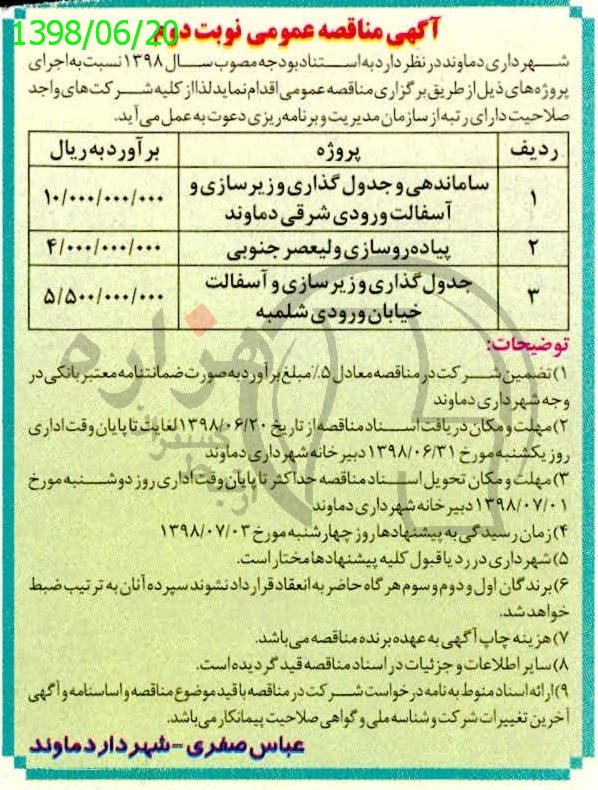 1398/06/20
آگهی مناقصه عمومی نوبت دوم
شهرداری دماوند در نظر دارد به استناد بودجه مصوب سال ۱۳۹۸ نسبت به اجرای
پروژه های ذیل از طریق برگزاری مناقصه عمومی اقدام نماید لذا از کلیه شرکت های واجد
صلاحیت دارای رتبه از سازمان مدیریت و برنامه ریزی دعوت به عمل می آید.
ردیف پروژه برآورد به ریال
۱ ساماندهی و جدول گذاری و زیرسازی و ۱۰/۰۰۰/۰۰۰/۰۰۰
آسفالت ورودی شرقی دماوند
۲ پیاده روسازی ولیعصر جنوبی ۴/۰۰۰/۰۰۰/۰۰۰
۳ جدول گذاری و زیرسازی و آسفالت ۵/۵۰۰/۰۰۰/۰۰۰
خیابان ورودی شلمبه
توضیحات:
۱) تضمین شرکت در مناقصه معادل ۵٪ مبلغ برآورد به صورت ضمانتنامه معتبر بانکی در
وجه شهرداری دماوند
۲) مهلت و مکان دریافت اسناد مناقصه از تاریخ ۱۳۹۸/۰۶/۲۰ لغایت تا پایان وقت اداری
روز یکشنبه مورخ ۱۳۹۸/۰۶/۳۱ دبیرخانه شهرداری دماوند
۳) مهلت و مکان تحویل اسناد مناقصه حداکثر تا پایان وقت اداری روز دوشنبه مورخ
۱۳۹۸/۰۷/۰۱ دبیرخانه شهرداری دماوند
۴) زمان رسیدگی به پیشنهادها روز چهارشنبه مورخ ۱۳۹۸/۰۷/۰۳
۵) شهرداری در رد یا قبول کلیه پیشنهادها مختار است.
۶) برندگان اول و دوم و سوم هرگاه حاضر به انعقاد قرارداد نشوند سپرده آنان به ترتیب ضبط
خواهد شد.
۷) هزینه چاپ آگهی به عهده برنده مناقصه می باشد.
۸) سایر اطلاعات و جزئیات در اسناد مناقصه قید گردیده است.
۹) ارائه اسناد منوط به نامه درخواست شرکت در مناقصه با قید موضوع مناقصه و اساسنامه و آگهی
آخرین تغییرات شرکت و شناسه ملی و گواهی صلاحیت پیمانکار می باشد.
عباس صفری - شهردار دماوند
هزاره